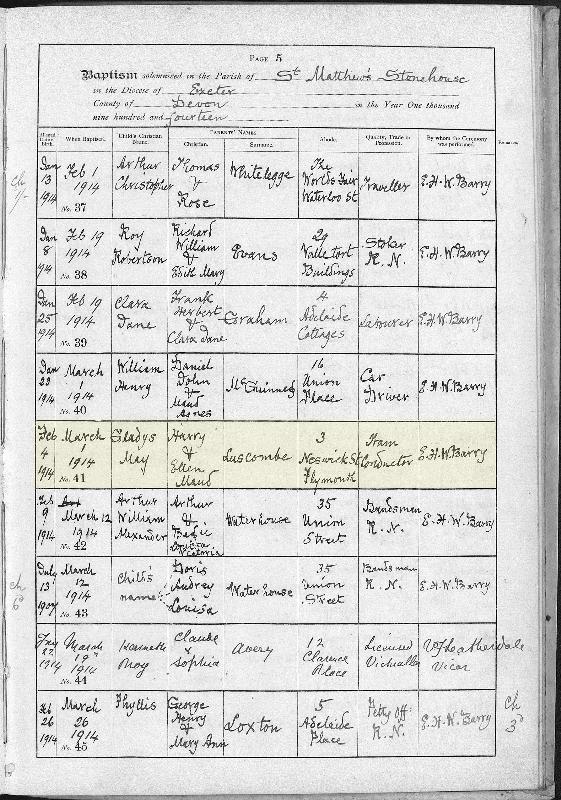 PAGE 5
Baptism solemnised in the Parish of St Matthew's Stonehouse
in the Diocese of Exeter
County of Devon in the Year One thousand
nine hundred and fourteen
When Baptised.
Child's Christian Name.
PARENTS' NAMES
Christian.
Surname.
Abode.
Quality, Trade or Profession.
By whom the Ceremony was performed.
Remarks
Jan 13 1914
Feb 1 1914
No. 37
Arthur Christopher
Thomas & Rose
Whitelegge
The World's Fair Waterloo St
Traveller
E.H.W. Barry
Jan 8 1914
Feb 19 1914
No. 38
Roy Robertson
Richard William & Edith Mary
Evans
29 Valletort Buildings
Stoker R.N.
E.H.W. Barry
Jan 25 1914
Feb 19 1914
No. 39
Clara Jane
Frank Herbert & Clara Jane
Graham
4 Adelaide Cottages
Labourer
E.H.W. Barry
Jan 1914
March 1 1914
No. 40
William Henry
Daniel John & Maud Agnes
McGuinness
16 Union Place
Car Driver
E.H.W. Barry
Feb 4 1914
March 1 1914
No. 41
Gladys May
Harry & Ellen Maud
Luscombe
3 Neswick St Plymouth
Tram Conductor
E.H.W. Barry
Feb 9 1914
March 12 1914
No. 42
Arthur William Alexander
Arthur & Victoria
Waterhouse
35 Union Street
Bandsman R.N.
E.H.W. Barry
July 13 1907
March 12 1914
No. 43
Child's name
Doris Audrey Louisa
Waterhouse
35 Union Street
Bandsman R.N.
E.H.W. Barry
1914
March 19 1914
No. 44
Kenneth Roy
Claude & Sophia
Avery
12 Clarence Place
Licensed Victualler
Vicar
Feb 26 1914
March 26 1914
No. 45
Phyllis
George Henry & Mary Ann
Loxton
5 Adelaide Place
Petty Off: R.N.
E.H.W. Barry